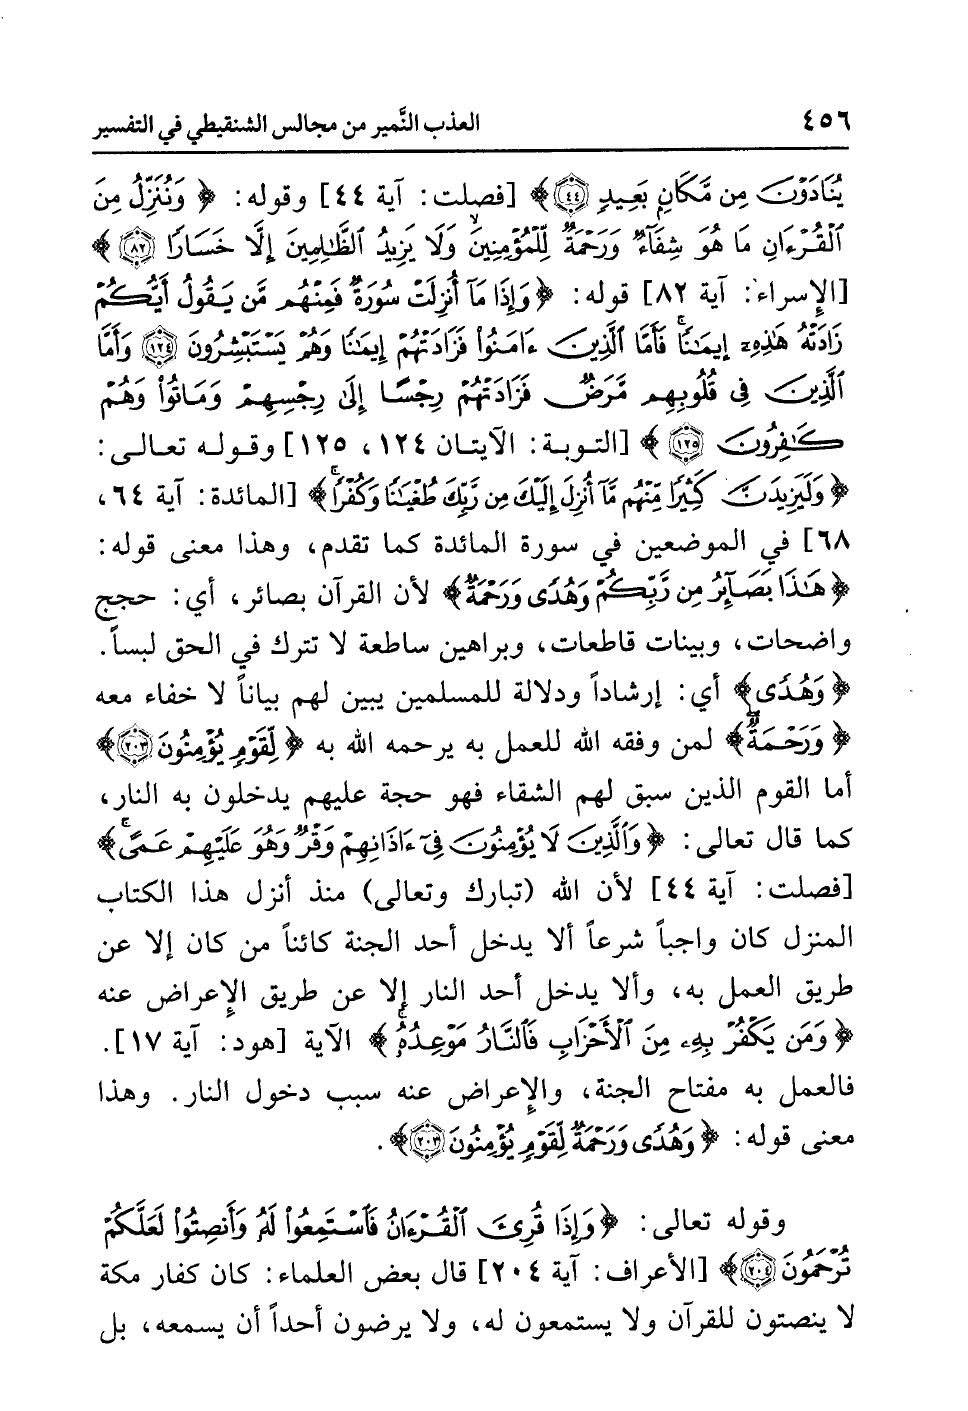 ٤٥٦ العذب النَّمير من مجالس الشنقيطي في التفسير
يُنَادَوْنَ مِن مَّكَانٍ بَعِيدٍ ﴿٤٤﴾﴾ [فصلت: آية ٤٤] وقوله: ﴿وَنُنَزِّلُ مِنَ
ٱلْقُرْءَانِ مَا هُوَ شِفَآءٌ وَرَحْمَةٌ لِّلْمُؤْمِنِينَ وَلَا يَزِيدُ ٱلظَّٰلِمِينَ إِلَّا خَسَارًا ﴿٨٢﴾﴾
[الإسراء: آية ٨٢] قوله: ﴿وَإِذَا مَآ أُنزِلَتْ سُورَةٌ فَمِنْهُم مَّن يَقُولُ أَيُّكُمْ
زَادَتْهُ هَٰذِهِۦٓ إِيمَٰنًا فَأَمَّا ٱلَّذِينَ ءَامَنُوا۟ فَزَادَتْهُمْ إِيمَٰنًا وَهُمْ يَسْتَبْشِرُونَ ﴿١٢٤﴾ وَأَمَّا
ٱلَّذِينَ فِى قُلُوبِهِم مَّرَضٌ فَزَادَتْهُمْ رِجْسًا إِلَىٰ رِجْسِهِمْ وَمَاتُوا۟ وَهُمْ
كَٰفِرُونَ ﴿١٢٥﴾﴾ [التوبة: الآيتان ١٢٤، ١٢٥] وقوله تعالى:
﴿وَلَيَزِيدَنَّ كَثِيرًا مِّنْهُم مَّآ أُنزِلَ إِلَيْكَ مِن رَّبِّكَ طُغْيَٰنًا وَكُفْرًا﴾ [المائدة: آية ٦٤،
٦٨] في الموضعين في سورة المائدة كما تقدم، وهذا معنى قوله:
﴿هَٰذَا بَصَآئِرُ مِن رَّبِّكُمْ وَهُدًى وَرَحْمَةٌ﴾ لأن القرآن بصائر، أي: حجج
واضحات، وبينات قاطعات، وبراهين ساطعة لا تترك في الحق لبساً.
﴿وَهُدًى﴾ أي: إرشاداً ودلالة للمسلمين يبين لهم بياناً لا خفاء معه
﴿وَرَحْمَةٌ﴾ لمن وفقه الله للعمل به يرحمه الله به ﴿لِّقَوْمٍ يُؤْمِنُونَ ﴿٢٠٣﴾﴾
أما القوم الذين سبق لهم الشقاء فهو حجة عليهم يدخلون به النار،
كما قال تعالى: ﴿وَٱلَّذِينَ لَا يُؤْمِنُونَ فِىٓ ءَاذَانِهِمْ وَقْرٌ وَهُوَ عَلَيْهِمْ عَمًى﴾
[فصلت: آية ٤٤] لأن الله (تبارك وتعالى) منذ أنزل هذا الكتاب
المنزل كان واجباً شرعاً ألا يدخل أحد الجنة كائناً من كان إلا عن
طريق العمل به، وألا يدخل أحد النار إلا عن طريق الإعراض عنه
﴿وَمَن يَكْفُرْ بِهِۦ مِنَ ٱلْأَحْزَابِ فَٱلنَّارُ مَوْعِدُهُۥ﴾ الآية [هود: آية ١٧].
فالعمل به مفتاح الجنة، والإعراض عنه سبب دخول النار. وهذا
معنى قوله: ﴿وَهُدًى وَرَحْمَةٌ لِّقَوْمٍ يُؤْمِنُونَ ﴿٢٠٣﴾﴾.
وقوله تعالى: ﴿وَإِذَا قُرِئَ ٱلْقُرْءَانُ فَٱسْتَمِعُوا۟ لَهُۥ وَأَنصِتُوا۟ لَعَلَّكُمْ
تُرْحَمُونَ ﴿٢٠٤﴾﴾ [الأعراف: آية ٢٠٤] قال بعض العلماء: كان كفار مكة
لا ينصتون للقرآن ولا يستمعون له، ولا يرضون أحداً أن يسمعه، بل